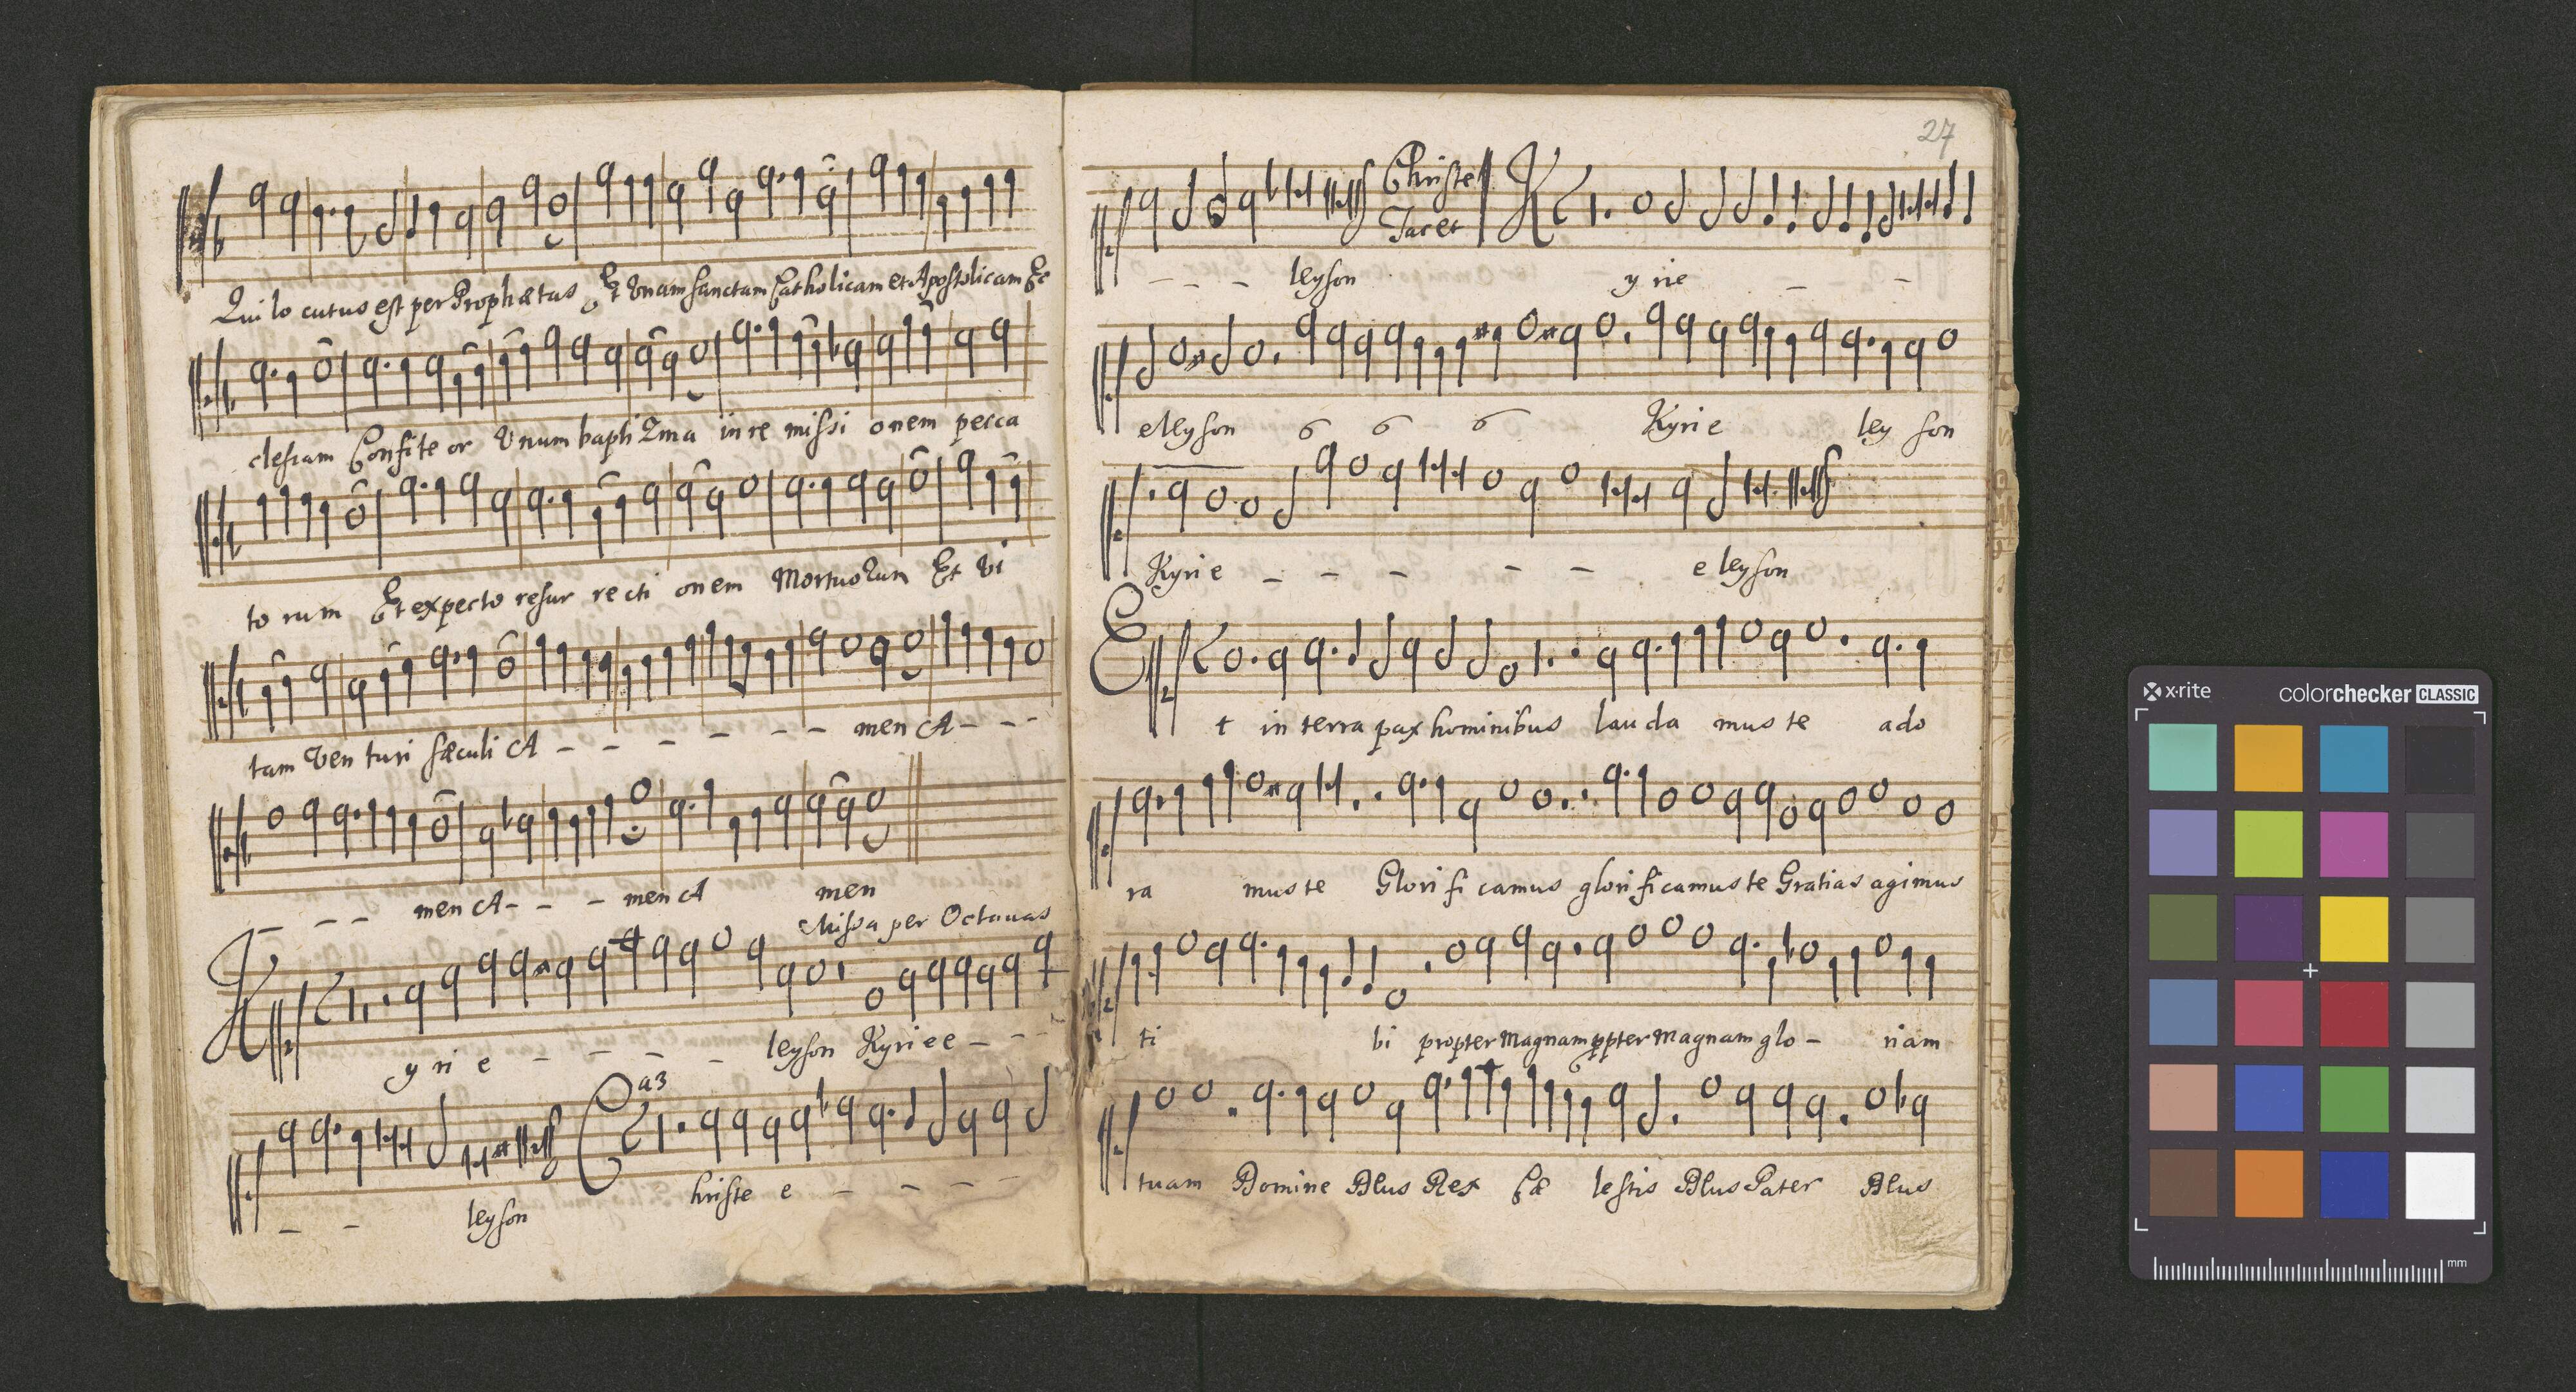 Qui lo cutus est per Prophætas Et Vnam sanctam Catholicam et Apostolicam Ec
clesiam Confite or Vnum bapti Zma in re missi onem pecca
to rum Et expecto resur re cti onem Mortuorum Et Vi
tam Ven turi sæculi A – – – – – – men A – – –
– – – men A – – – men A men
Missa per Octauas
K y ri e – – – – leyson Kyrie e – – –
a3
– – leyson C hriste e – – – –
27
Christe
Tacet
– – – leyson K y rie – –
eleyson 6 6 6 Kyri e ley son
Kyri e – – – – – e leyson
E t in terra pax hominibus lau da mus te ado
ra mus te Glori fi camus glori ficamus te Gratias agimus
ti bi propter Magnam ppter Magnam glo – riam
tuam Domine Deus Rex Cæ lestis Deus Pater Deus
x·rite
colorchecker CLASSIC
mm